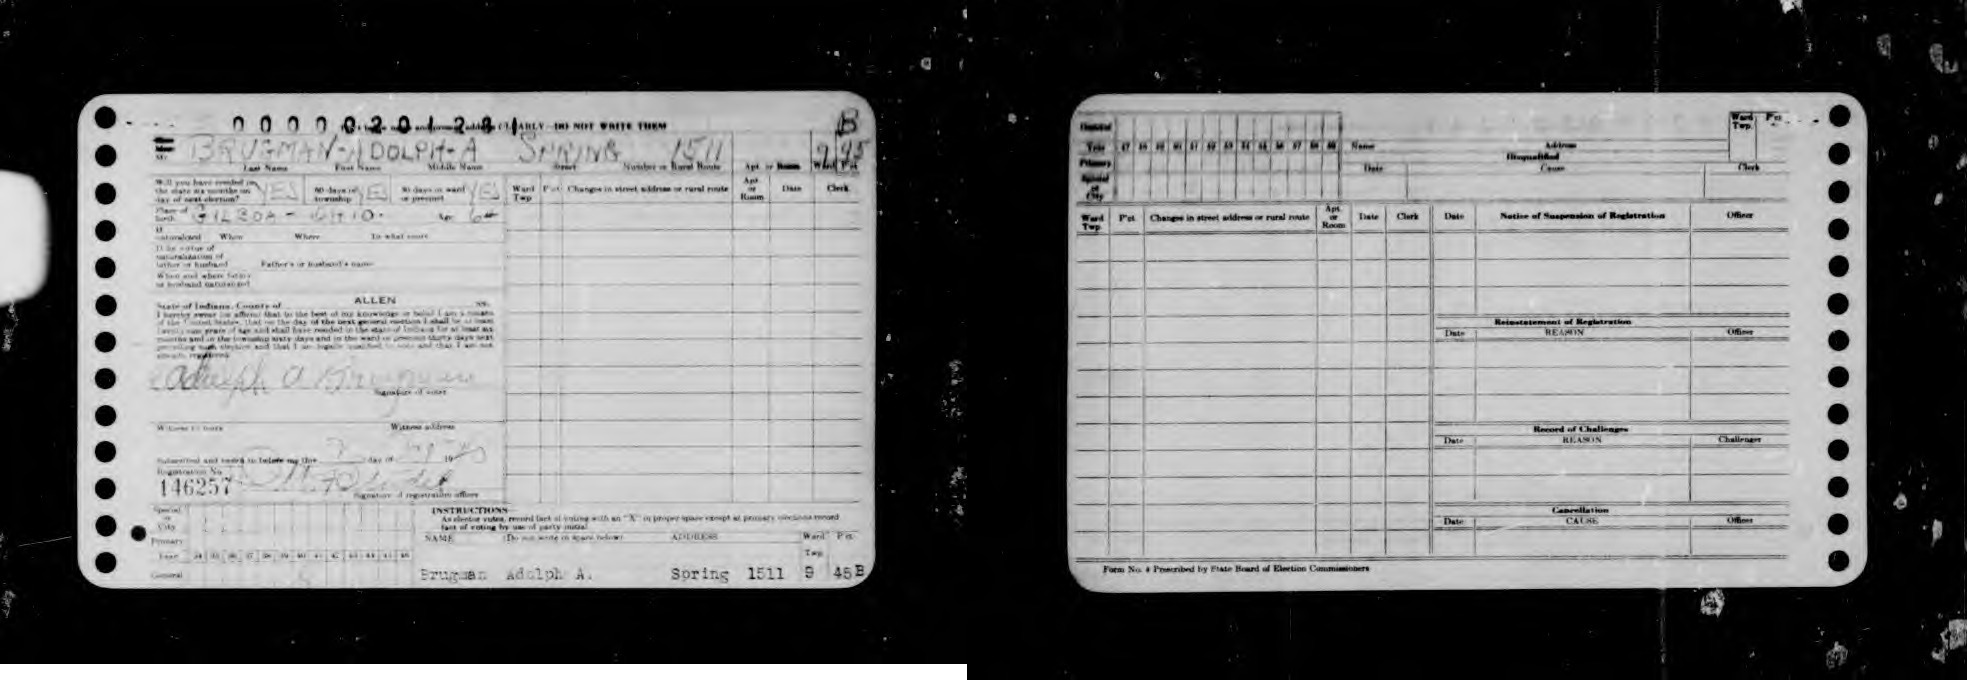 0000020128 ARLY—DO NOT WRITE THEM B
BRUGMAN-ADOLPH-A SPRING 1511 9 45
Last Name First Name Middle Name Street Number or Rural Route Apt. or Room Ward P'ct
Will you have resided in the state six months on day of next election? YES 60 days in township YES 30 days in ward or precinct YES
Ward Twp P'ct Changes in street address or rural route Apt. or Room Date Clerk
Place of birth GILBOA - OHIO.
If naturalized When Where To what court
If by virtue of naturalization of father or husband Father's or husband's name
When and where father or husband naturalized
State of Indiana, County of ALLEN ss.
I hereby swear (or affirm) that to the best of my knowledge or belief I am a citizen
of the United States, that on the day of the next general election I shall be at least
twenty-one years of age and shall have resided in the state of Indiana for at least six
months and in the township sixty days and in the ward or precinct thirty days next
preceding such election and that I am legally qualified to vote and that I am not
already registered.
Adolph A Brugman
Signature of voter
Witness to mark Witness address
Subscribed and sworn to before me this 7 day of 19
Registration No.
146257
Signature of registration officer
Special or City
Primary
Year 34 35 36 37 38 39 40 41 42 43 44 45 46
General
INSTRUCTIONS
As elector votes, record fact of voting with an "X" in proper space except at primary elections record
fact of voting by use of party initial
NAME (Do not write in space below) ADDRESS Ward P'ct
Twp
Brugman Adolph A. Spring 1511 9 45B
General
Year 47 48 49 50 51 52 53 54 55 56 57 58 59
Primary
Special or City
Name Address
Ward Twp. P'ct
Disqualified
Date Cause Clerk
Ward Twp P'ct Changes in street address or rural route Apt. or Room Date Clerk
Date Notice of Suspension of Registration Officer
Reinstatement of Registration
Date REASON Officer
Record of Challenges
Date REASON Challenger
Cancellation
Date CAUSE Officer
Form No. 4 Prescribed by State Board of Election Commissioners